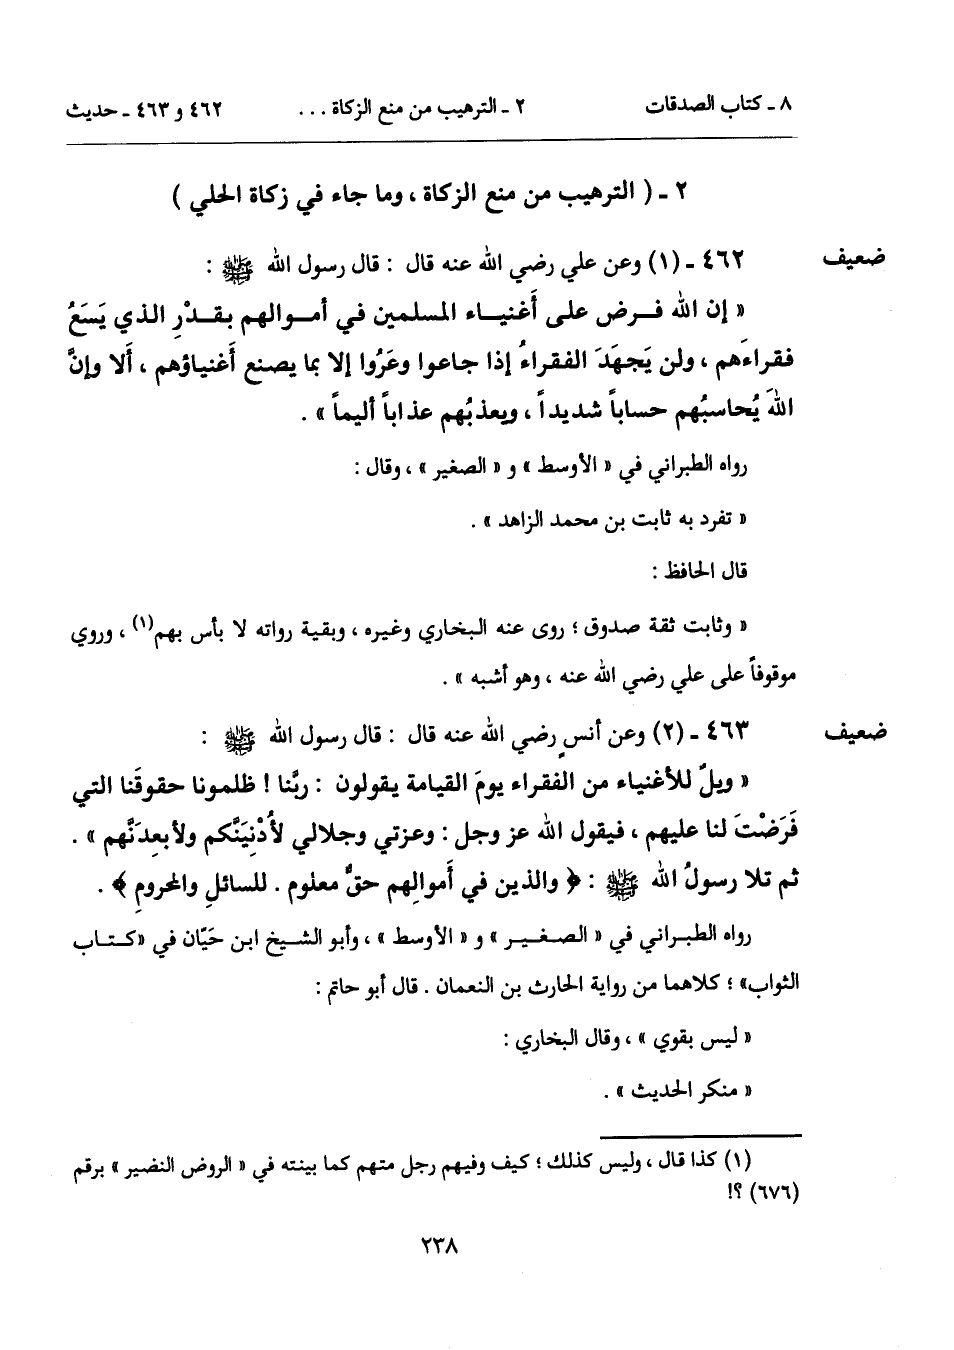 ٨ ـ كتاب الصدقات ٢ ـ الترهيب من منع الزكاة ... ٤٦٢ و ٤٦٣ ـ حديث
٢ ـ ( الترهيب من منع الزكاة ، وما جاء في زكاة الحلي )
ضعيف ٤٦٢ ـ (١) وعن علي رضي الله عنه قال : قال رسول الله ﷺ :
« إن الله فـرض على أَغنيـاء المسلمين في أمـوالهم بقـدْرِ الذي يَسَعُ
فقراءَهم ، ولن يَجهَدَ الفقراءُ إذا جاعوا وعَرُوا إلا بما يصنع أَغنياؤهم ، ألا وإنَّ
اللهَ يُحاسبُهم حساباً شديداً ، ويعذبُهم عذاباً أليماً » .
رواه الطبراني في « الأوسط » و « الصغير » ، وقال :
« تفرد به ثابت بن محمد الزاهد » .
قال الحافظ :
« وثابت ثقة صدوق ؛ روى عنه البخاري وغيره ، وبقية رواته لا بأس بهم(١) ، وروي
موقوفاً على علي رضي الله عنه ، وهو أشبه » .
ضعيف ٤٦٣ ـ (٢) وعن أنسٍ رضي الله عنه قال : قال رسول الله ﷺ :
« ويلٌ للأغنياء من الفقراء يومَ القيامة يقولون : ربَّنا ! ظلمونا حقوقَنا التي
فَرَضْتَ لنا عليهم ، فيقول الله عز وجل : وعزتي وجلالي لأُدْنِيَنَّكم ولأبعِدَنَّهم » .
ثم تلا رسولُ الله ﷺ : ﴿ والذين في أَموالِهم حقٌّ معلوم . للسائلِ والمحرومِ ﴾ .
رواه الطبـراني في « الصـغـيـر » و « الأوسط » ، وأبو الشـيخ ابن حَيّان في «كـتـاب
الثواب» ؛ كلاهما من رواية الحارث بن النعمان . قال أبو حاتم :
« ليس بقوي » ، وقال البخاري :
« منكر الحديث » .
(١) كذا قال ، وليس كذلك ؛ كيف وفيهم رجل متهم كما بينته في « الروض النضير » برقم
(٦٧٦) ؟!
٢٣٨